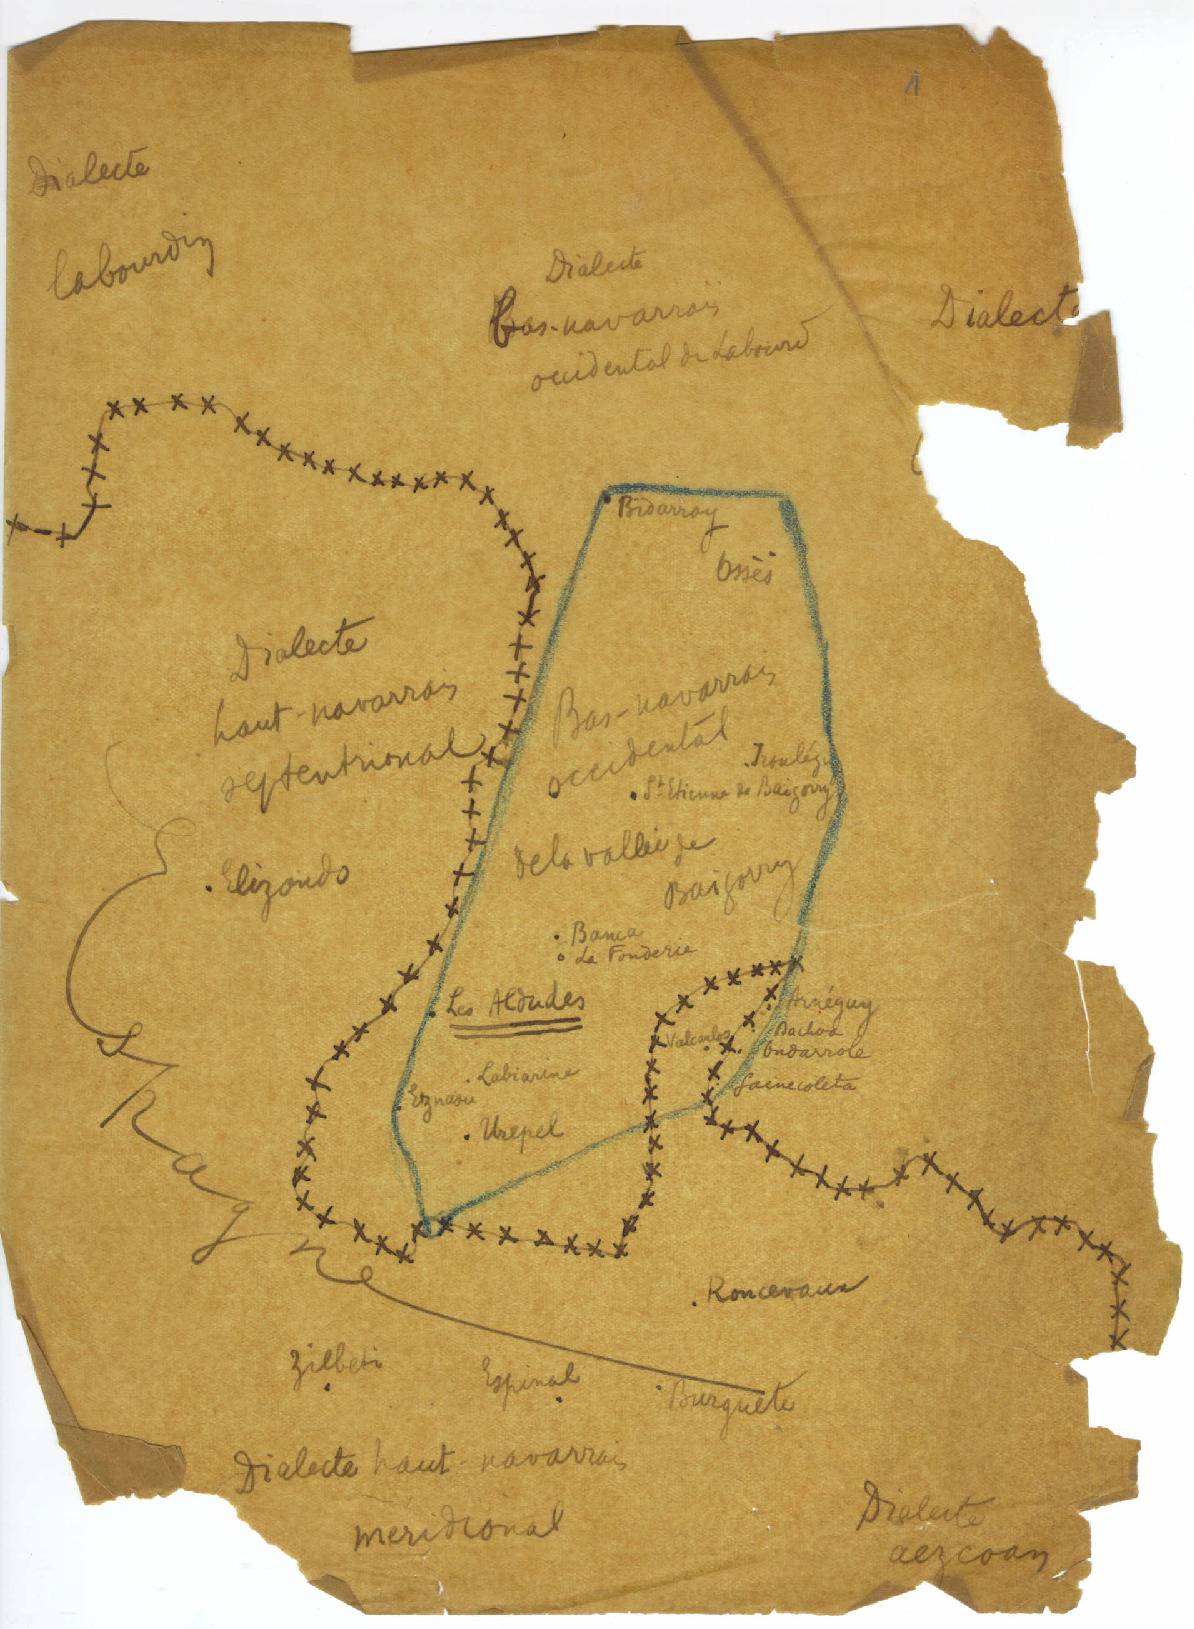 Dialecte
labourdin
Dialecte
bas-navarrais
occidental du Labourd
Dialecte
Bidarray
Ossès
Dialecte
haut-navarrais
septentrional
Bas-navarrais
occidental
de la vallée de
Baigorry
.Irouléguy
.St Etienne de Baigorry
.Elizondo
. Banca
o La Fonderie
.Les Aldudes
Arnéguy
Valcarlos
Bachoa
Ondarrole
Gainecoleta
.Labiarine
Eznasu
.Urepel
Espagne
.Roncevaux
Zilbeti
Espinal
Burguete
Dialecte haut-navarrais
méridional
Dialecte
aezcoan